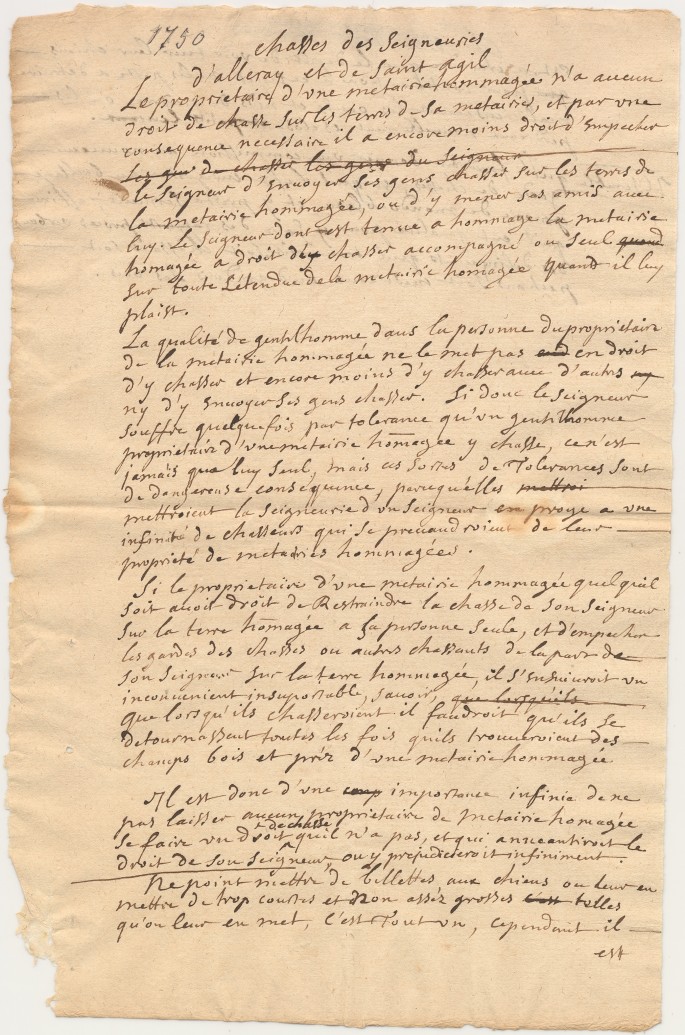 1750
chasses des Seigneuries
d'alleray et de Saint agil
Le proprietaire d'une metairie hommagée n'a aucun
droit de chasse sur les terres de Sa metairie, et par une
consequence necessaire il a encore moins droit d'Empecher
les gens de chasser les gens du Seigneur
le Seigneur d'Envoyer Ses gens chasser sur les terres de
la metairie hommagée, ou d'y mener Ses amis avec
luy. Le Seigneur dont est tenue a hommage la metairie
homagée a droit d'y chasser accompagné ou Seul quand
Sur toute L'étendue de la metairie homagée quand il luy
plaist.
La qualité de gentilhomme dans la personne du proprietaire
de la metairie hommagée ne le met pas en droit
d'y chasser et encore moins d'y chasser avec d'autres ny
ny d'y Envoyer Ses gens chasser. Si donc le Seigneur
Souffre quelquefois par tolerance qu'un gentilhomme
proprietaire d'une metairie homagée y chasse, ce n'est
jamais que luy Seul, mais ces Sortes de Tolerances Sont
de dangereuse conséquence, parcequ'elles mettroi
mettroient la Seigneurie d'un Seigneur en proye a une
infinité de chasseurs qui Se prevaudroient de leur
propriété de metairies hommagées.
Si le proprietaire d'une metairie hommagée quelqu'il
Soit avoit droit de Restraindre la chasse de Son Seigneur
Sur la terre homagée a Sa personne Seule, et d'empecher
les gardes des chasses ou autres chassants de la part de
Son Seigneur Sur la terre hommagée, il S'ensuivroit un
inconvenient insuportable, Savoir, que lorsqu'ils
que lorsqu'ils chasseroient il faudroit qu'ils Se
detournassent toutes les fois qu'ils trouveroient des
champs bois et préz d'une metairie hommagée
Il est donc d'une importance infinie de ne
pas laisser aucun proprietaire de metairie homagée
Se faire un droit de chasse qu'il n'a pas, et qui anneantiroit le
droit de Son Seigneur, ou y prejudicieroit infiniment.
Ne point mettre de billettes aux chiens ou leur en
mettre de trop courtes et non assez grosses c'est telles
qu'on leur en met, c'est Tout un, cependant il
est